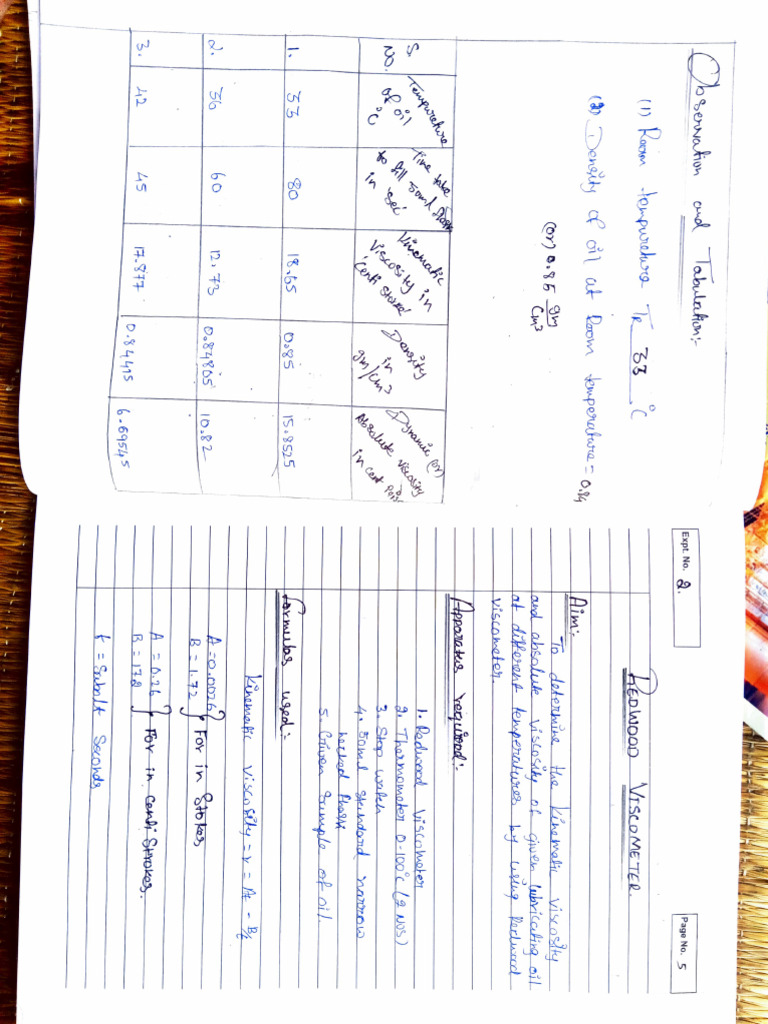 Observation and Tabulation:-
(1) Room tempureture TR 33 °C
(2) Density of oil at Room temperature = 0.84
(or) 0.85 gm/cm³
S. No. | Tempureture of oil °C | Time take to fill 50ml flask in 'sec' | Kinematic Viscosity in Centi stoked | Density in gm/cm3 | Dynamic (or) Absolute viscosity in cent Poise
1. | 33 | 80 | 18.65 | 0.85 | 15.8525
2. | 36 | 60 | 12.73 | 0.84805 | 10.82
3. | 42 | 45 | 17.877 | 0.84415 | 6.69545
Expt. No. 2.
Page No. 5
REDWOOD VISCOMETER.
Aim:-
To determine the kinematic viscosity
and absolute viscosity of given lubricating oil
at different temperatures by using Redwood
viscometer.
Apparatus required:-
1. Redwood viscometer
2. Thermometer 0-100°C (2 NOS)
3. Stop watch
4. 50ml standard narrow
necked flask
5. Given sample of oil.
Formulas used:
Kinematic viscosity = v = At - B/t
A = 0.0026 } For in Stokes
B = 1.72
A = 0.26 } For in centi Strokes.
B = 172
t = Sabolt Seconds